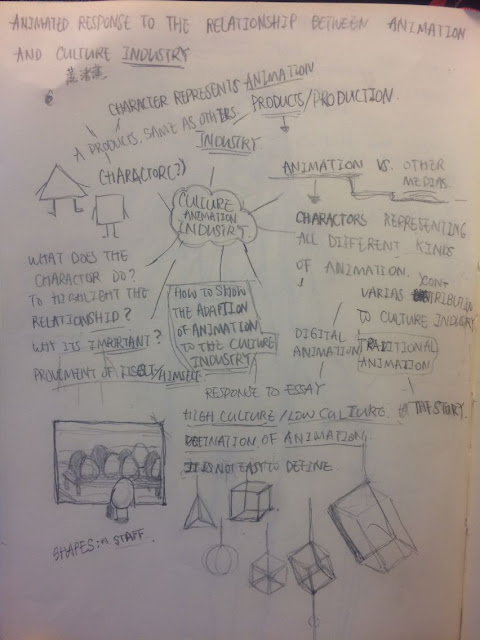 ANIMATED RESPONSE TO THE RELATIONSHIP BETWEEN ANIMATION
AND CULTURE INDUSTRY
CHARACTER REPRESENTS ANIMATION
PRODUCTS/PRODUCTION.
A PRODUCTS. SAME AS OTHERS
INDUSTRY
CHARACTOR(?)
ANIMATION VS. OTHER
MEDIAS.
CULTURE
ANIMATION
INDUSTRY.
CHARACTORS REPRESENTING
ALL DIFFERENT KINDS
OF ANIMATION.
WHAT DOES THE
CHARACTOR DO?
TO HIGHLIGHT THE
RELATIONSHIP?
WHY ITS IMPORTANT?
PROVEMENT OF ITSELF/HIMSELF
HOW TO SHOW
THE ADAPTION
OF ANIMATION
TO THE CULTURE
INDUSTRY
CONT
VARIAS TRIBUTION
TO CULTURE INDUSTRY
DIGITAL
ANIMATION
TRADITIONAL
ANIMATION
RESPONSE TO ESSAY
HIGH CULTURE/LOW CULTURE.
THE STORY.
DEFINATION OF ANIMATION
IT IS NOT EASY TO DEFINE
SHAPES: STAFF.